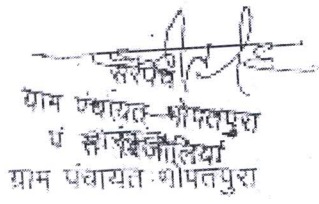 सरपंच
ग्राम पंचायत थोपतपुरा
पं
ग्राम पंचायत थोपतपुरा